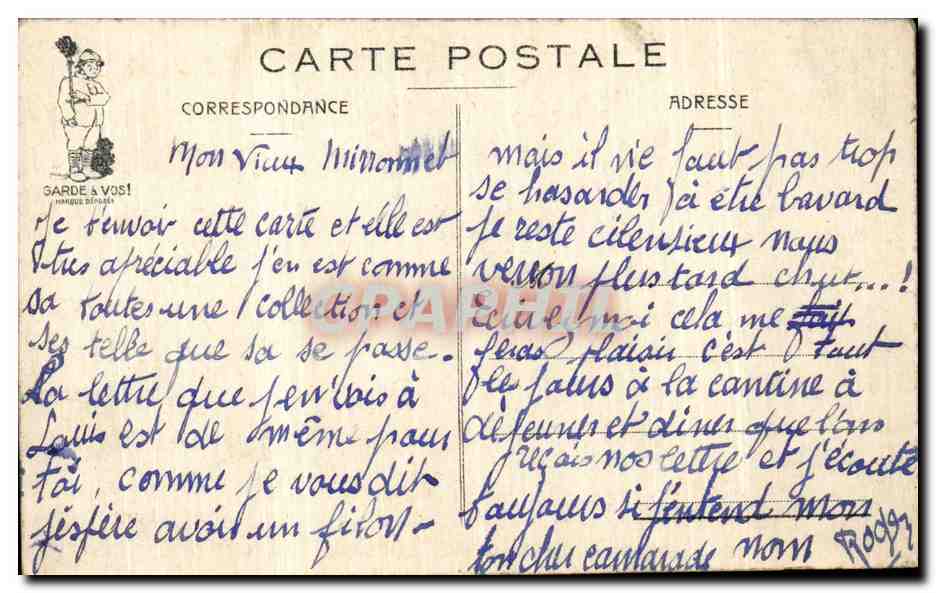 CARTE POSTALE
CORRESPONDANCE
GARDE à VOS!
MARQUE DÉPOSÉE
Mon Vieux Mironnet
Je t'envoir cette carte et elle est
très apréciable j'en est comme
sa toutes une collection et
ses telle que sa se passe.
La lettre que j'envois à
Louis est de même pour
Toi, comme je vous dit
j'éspère avoir un filon-
ADRESSE
mais il ne faut pas trop
se hasarder à être bavard
je reste cilensieux nous
veron plus tard chut....!
Ecire moi cela me fait
feras plaisir c'est Tout
les jours à la cantine à
déjeuner et diner que l'ons
reçois nos lettre et j'écoute
toujours si j'entend mon
nom
ton cher camarade
Roger
CPAPHIL